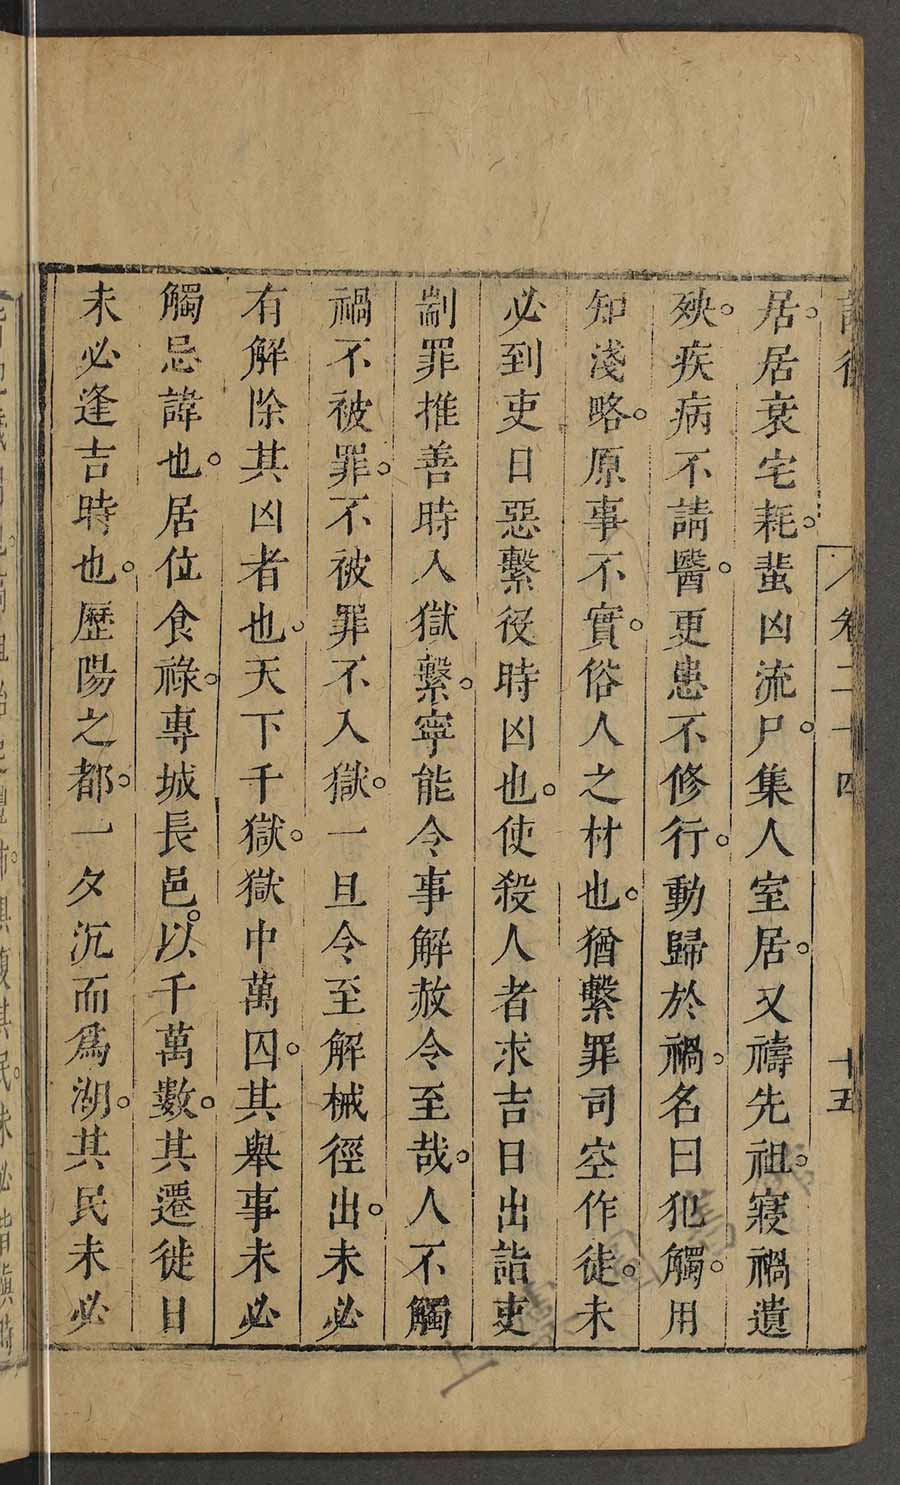 卷二十四
十五
居。居衰宅耗。蜚凶流尸。集人室居。又禱先祖。寢禍遺
殃。疾病不請醫。更患不修行。動歸於禍。名曰犯觸。用
知淺略。原事不實。俗人之材也。猶繫罪司空作徒。未
必到吏日惡繫役時凶也。使殺人者求吉日出詣吏
剬罪推善時入獄繫。寧能令事解赦令至哉。人不觸
禍不被罪。不被罪不入獄。一旦令至解械徑出。未必
有解除其凶者也。天下千獄。獄中萬囚。其舉事未必
觸忌諱也。居位食祿。專城長邑。以千萬數。其遷徙日
未必逢吉時也。歷陽之都。一夕沉而爲湖。其民未必